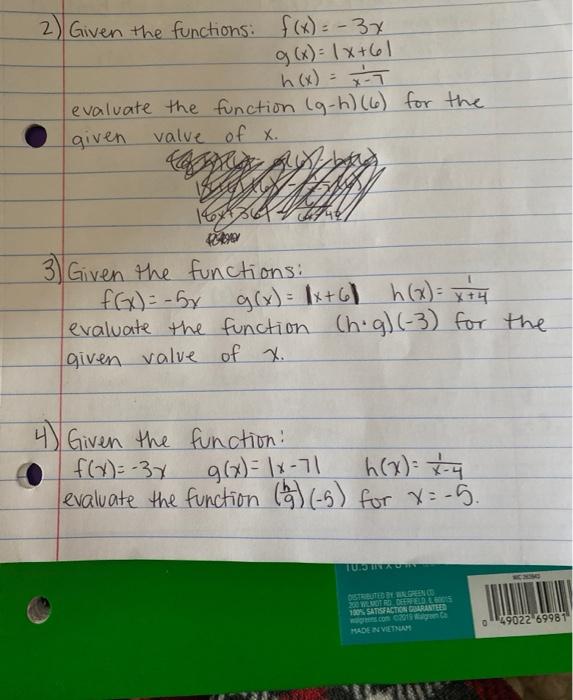 2) Given the functions: f(x) = -3x
g(x) = |x+6|
h(x) = 1/x-7
evaluate the function (g-h)(6) for the
given value of x.
3) Given the functions:
f(x) = -5x g(x) = |x+6| h(x) = 1/x+4
evaluate the function (h·g)(-3) for the
given value of x.
4) Given the function:
f(x) = -3x g(x) = |x-7| h(x) = 1/x-4
evaluate the function (h/g)(-5) for x = -5.
DISTRIBUTED BY WALGREEN CO
200 WILMOT RD DEERFIELD IL 60015
100% SATISFACTION GUARANTEED
walgreens.com ©2019 Walgreen Co
MADE IN VIETNAM
0 49022 69981